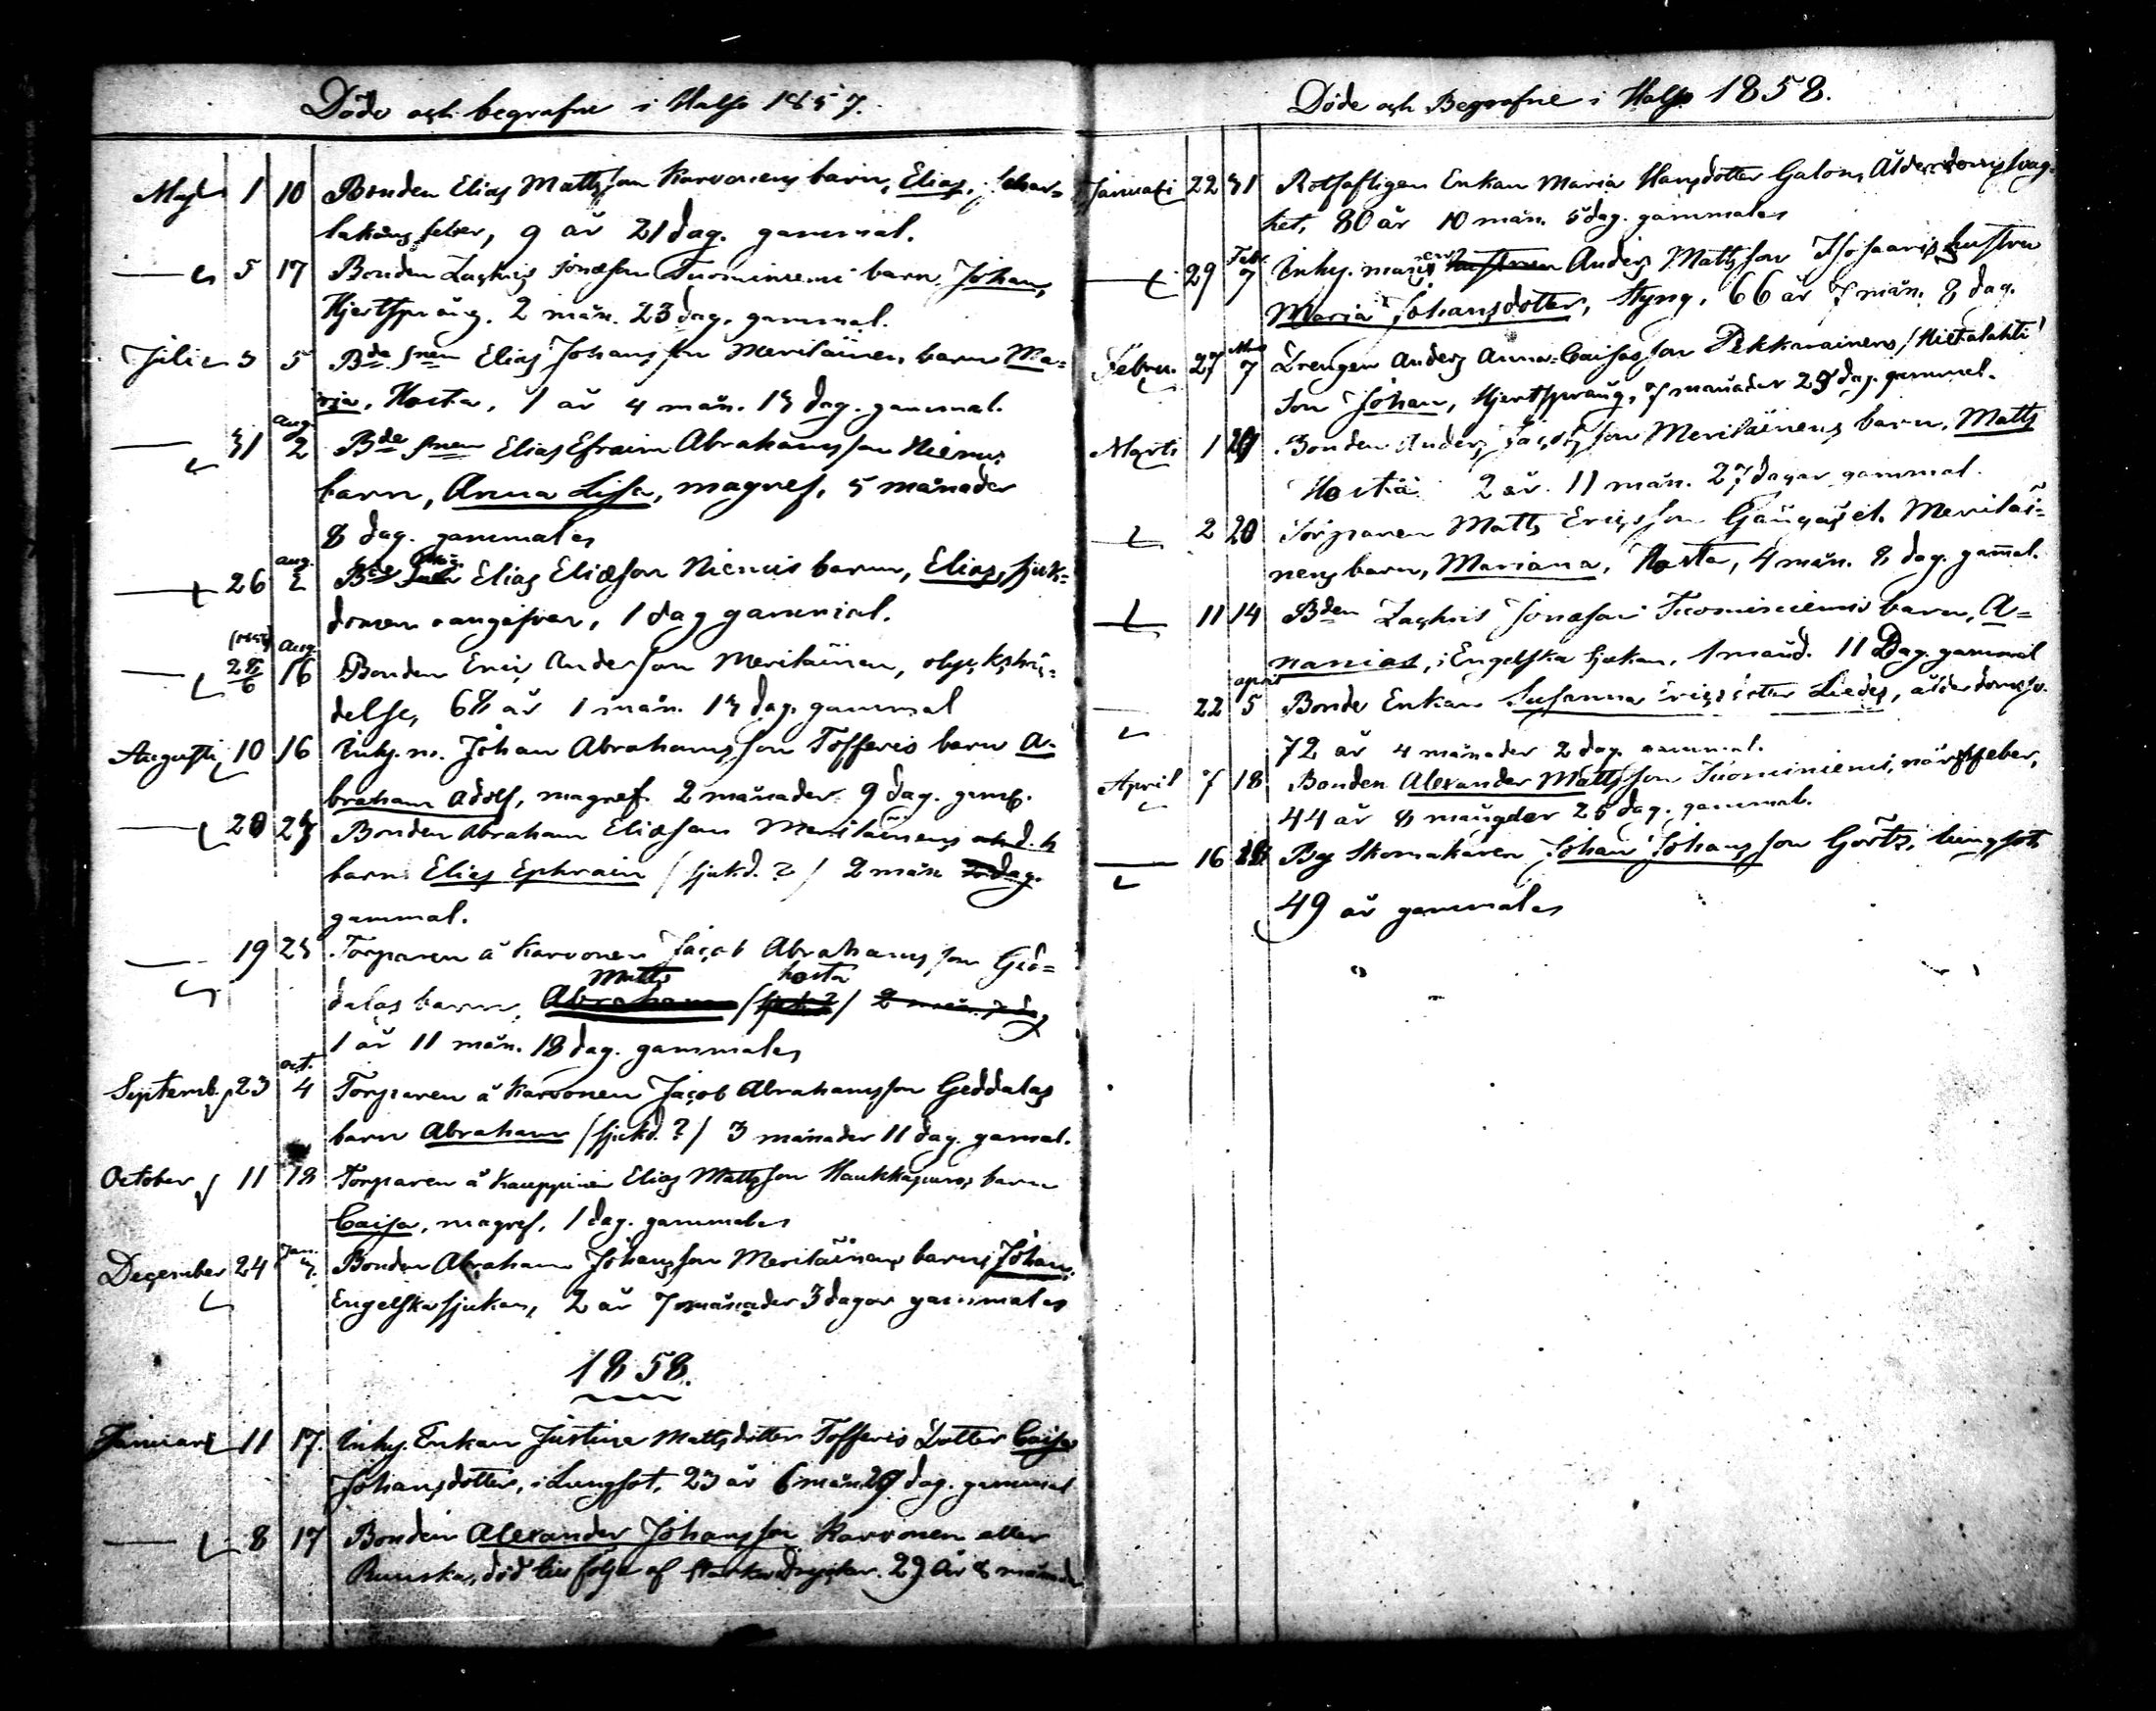 Döde och begrafne i Halso 1857.
Maji 1 10 Bonden Elias Mattsson Karvonens barn, Elias, i Schar=
lakans feber, 9 år 21 dag. gammal.
5 17 Bonden Zachris Jonæson Tuominiemi barn Johan,
Hjertsprång. 2 mån. 23 dag. gammal.
Julii 3 5 Bde snen Elias Johansson Meriläinens barn Ma=
ria, Hosta, 1 år 4 mån. 13 dag. gammal.
31 aug. 2 Bde snen Elias Efraim Abrahamsson Niemis
barn, Anna Lisa, magref, 5 månader
8 dag. gammal
26 aug. 2 Bde Elias Eliæson Niemis barn, Elias, sjuk=
domen oangifven, 1 dag gammal.
aug. 16 Bonden Eric Andersson Meriläinen, olyckshän=
delse, 68 år 1 mån. 13 dag. gammal
Augusti 10 16 Inhy. m. Johan Abrahamsson Tofferis barn A=
braham Adolf, magref. 2 månader 9 dag.
20 23 Bonden Abraham Eliæson Meriläinens
barn Elias Ephraim / sjukd. ? / 2 mån
gammal.
19 23 Torparen å Karvonen Jacob Abrahamsson Ged=
Matts hosta
dalas barn, Abraham / sjukd. ? / 2 mån. 7 dag
1 år 11 mån. 18 dag. gammal
oct.
Septemb. 23 4 Torparen å Karvonen Jacob Abrahamsson Geddalas
barn Abraham / sjukd. ? / 3 månader 11 dag. gamal.
October 11 18 Torparen å Kauppinen Elias Mattsson Haukkapuros barn
Caisa, magref, 1 dag. gammal
December 24 Jan. 3. Bonden Abraham Johansson Meriläinens barn Johan.
Engelska sjukan, 2 år 7 månader 3 dagar gammal
1858.
Januari 11 17. Inhy. Enkan Justina Mattsdotter Tofferis Dotter Caisa
Johansdotter, i Lungsot, 23 år 6 mån 29 dag. gammal
8 17 Bonden Alexander Johansson Karvonen eller
Runska, död till följe af starka drycker. 29 år 8 månader
Döde och Begrafne i Halso 1858.
Januari 22 31 Enkan Maria Hansdotter Galons, Ålderdomssvag=
het, 80 år 10 mån. 5 dag. gammal
29 Febr. 7 Inhy. mans hustrun Anders Mattsson Isosaaris hustru
Maria Johansdotter, Styng, 66 år 7 mån. 8 dag.
Febru. 27 Mars 7 Drengen Anders Anna-Caisasson Pekkanainens / Hietalahti /
son Johan, Hjertsprång, 7 månader 29 dag. gammal.
Marti 1 20 Bonden Anders Jacobsson Meriläinens barn, Matts
Hosta 2 år. 11 mån. 27 dagar gammal.
2 20 Torparen Matts Ericsson Gångas el. Meriläi=
nens barn, Mariana, Hosta, 4 mån. 8 dag. gamal.
11 14 Bden Zachris Jonæson Tuominiemis barn, A=
nanias, i Engelska sjukan, 1 månd. 11 Dag. gammal
22 april 5 Bonde Enkan Susanna Ericsdotter Liedes, ålderdomssv.
72 år 4 månader 2 dag. gammal.
April 7 18 Bonden Alexander Mattsson Tuominiemi, närffeber,
44 år 8 månader 25 dag. gammal.
16 18 By Skomakaren Johan Johansson Görtz, lungsot
49 år gammal